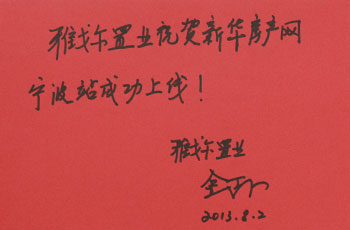 雅戈尔置业祝贺新华房产网
宁波站成功上线！
雅戈尔置业
2013.8.2